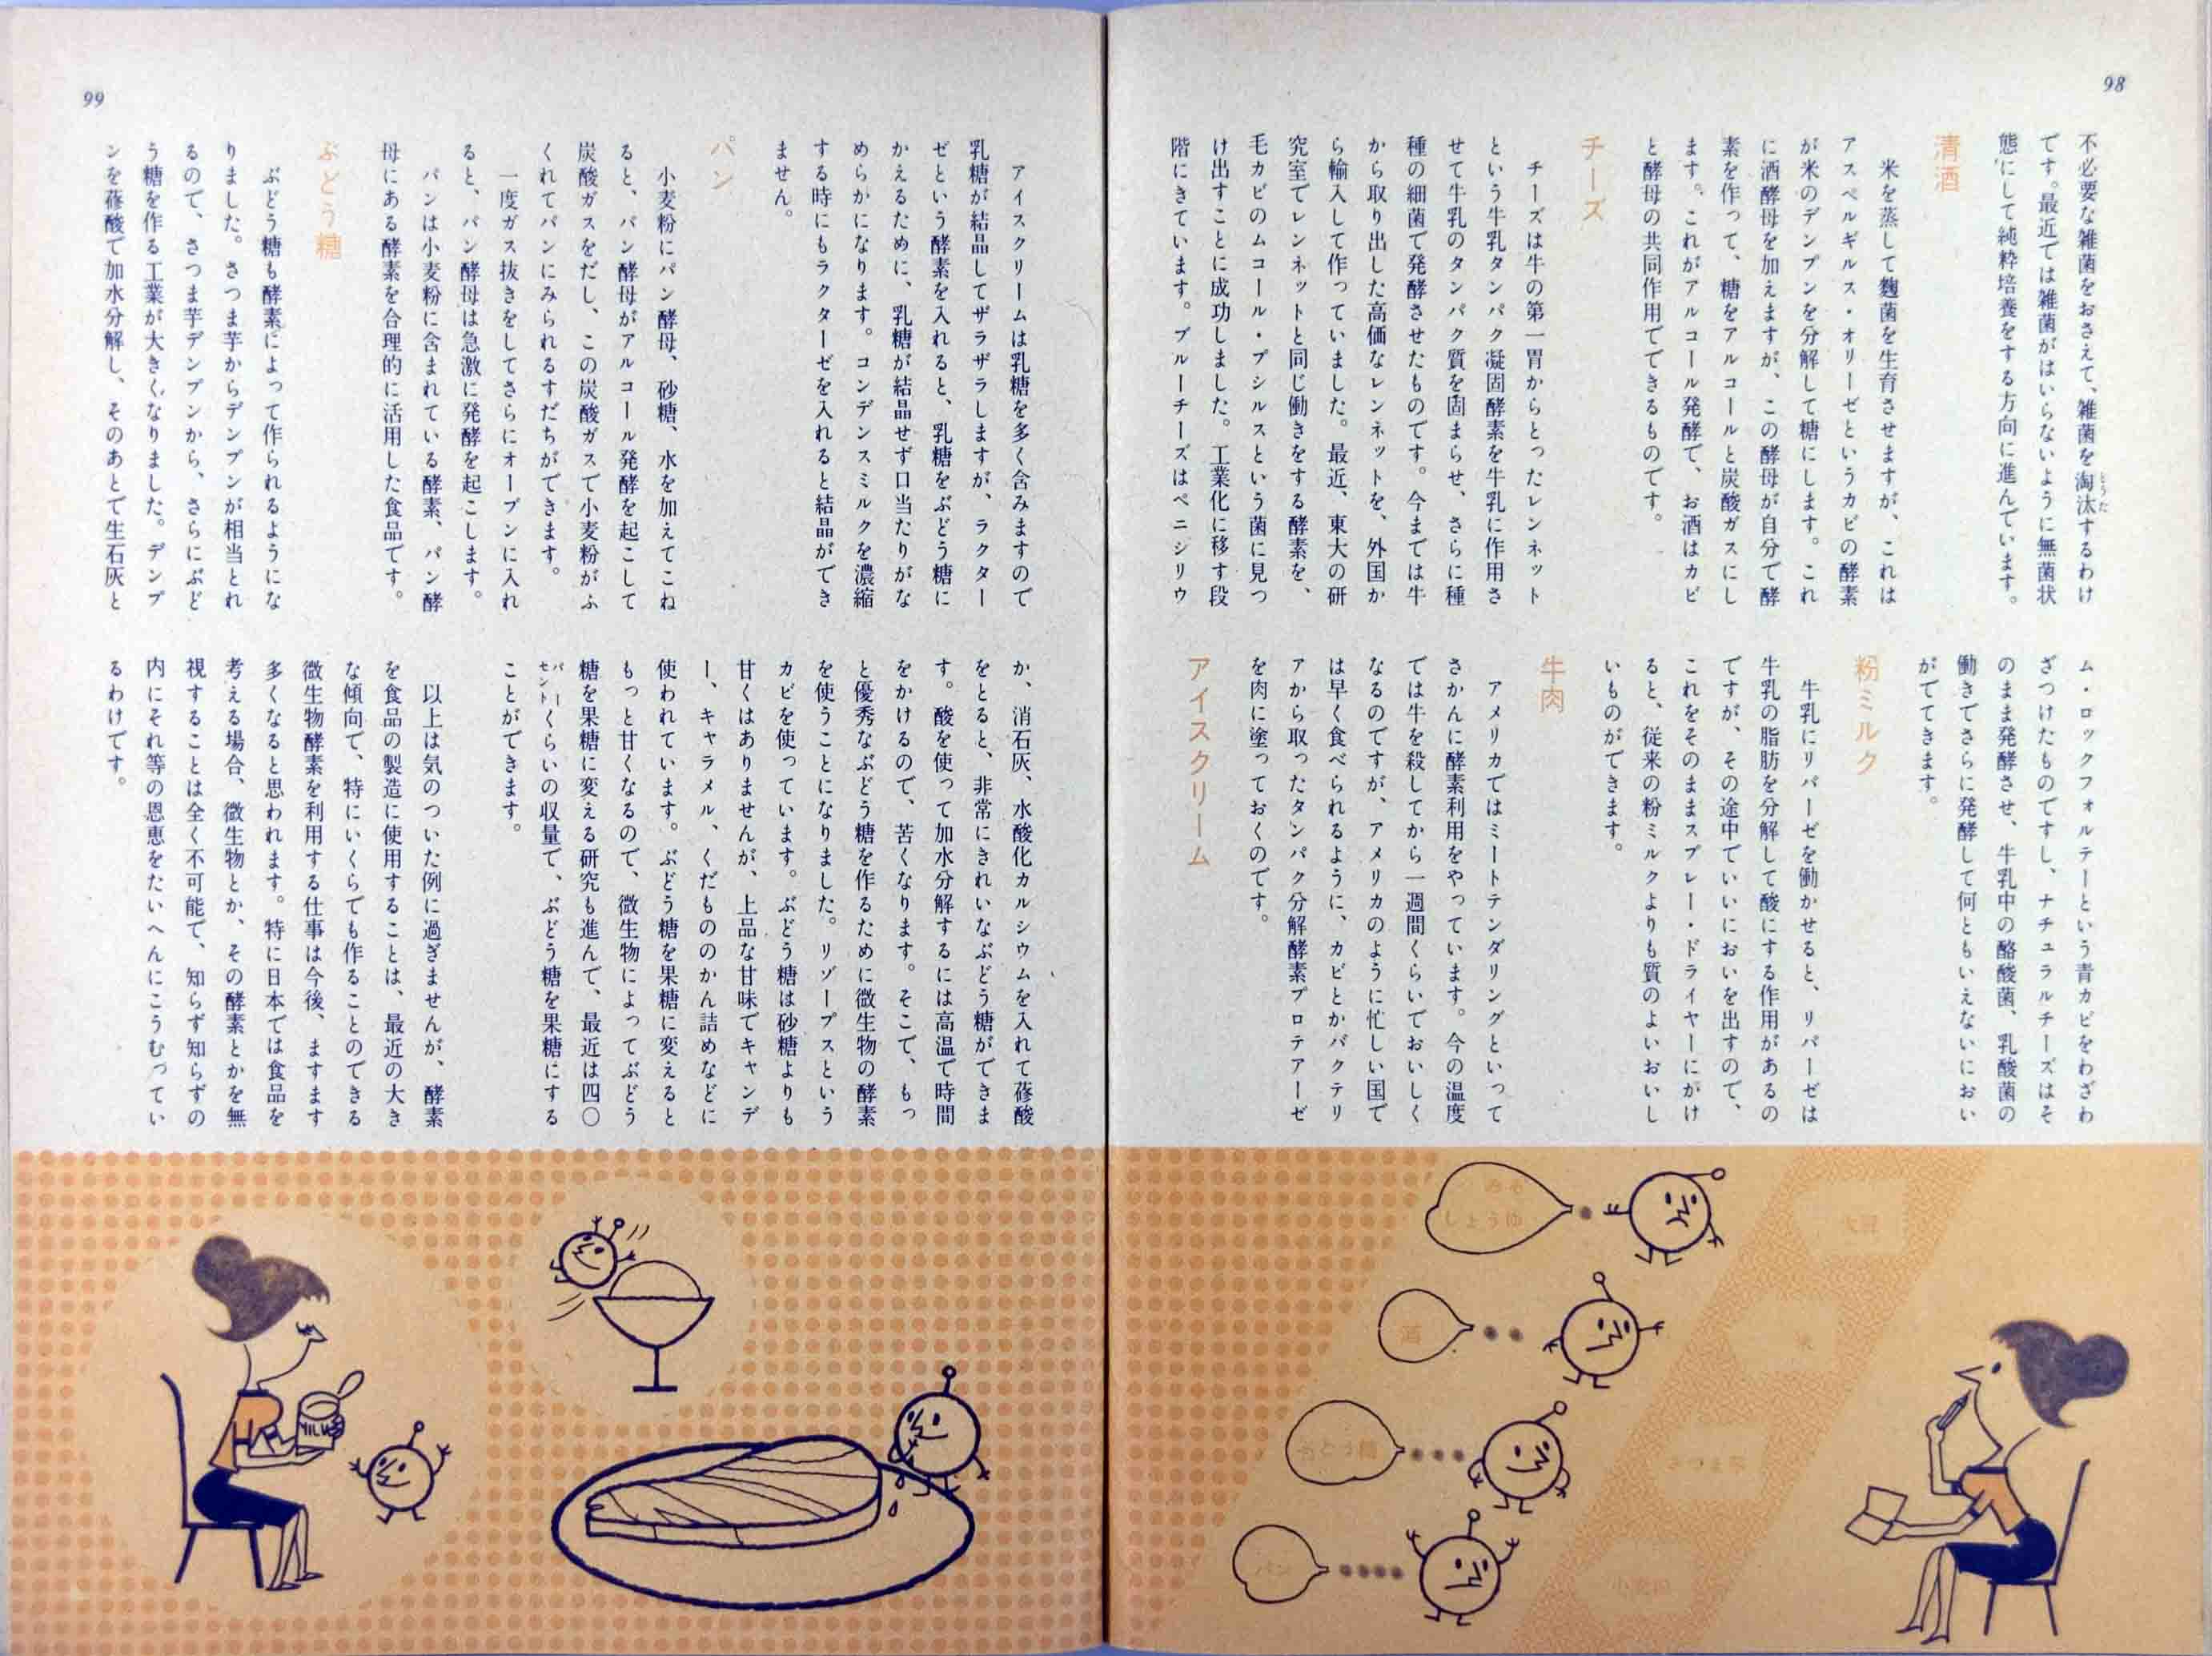 98
不必要な雑菌をおさえて、雑菌を淘汰するわけ
です。最近では雑菌がはいらないように無菌状
態にして純粋培養をする方向に進んでいます。
清酒
米を蒸して麴菌を生育させますが、これは
アスペルギルス・オリーゼというカビの酵素
が米のデンプンを分解して糖にします。これ
に酒酵母を加えますが、この酵母が自分で酵
素を作って、糖をアルコールと炭酸ガスにし
ます。これがアルコール発酵で、お酒はカビ
と酵母の共同作用でできるものです。
チーズ
チーズは牛の第一胃からとったレンネット
という牛乳タンパク凝固酵素を牛乳に作用さ
せて牛乳のタンパク質を固まらせ、さらに種
種の細菌で発酵させたものです。今までは牛
から取り出した高価なレンネットを、外国か
ら輸入して作っていました。最近、東大の研
究室でレンネットと同じ働きをする酵素を、
毛カビのムコール・プシルスという菌に見つ
け出すことに成功しました。工業化に移す段
階にきています。ブルーチーズはペニシリウ
ム・ロックフォルテーという青カビをわざわ
ざつけたものですし、ナチュラルチーズはそ
のまま発酵させ、牛乳中の酪酸菌、乳酸菌の
働きでさらに発酵して何ともいえないにおい
がでてきます。
粉ミルク
牛乳にリパーゼを働かせると、リパーゼは
牛乳の脂肪を分解して酸にする作用があるの
ですが、その途中でいいにおいを出すので、
これをそのままスプレー・ドライヤーにかけ
ると、従来の粉ミルクよりも質のよいおいし
いものができます。
牛肉
アメリカではミートテンダリングといって
さかんに酵素利用をやっています。今の温度
では牛を殺してから一週間くらいでおいしく
なるのですが、アメリカのように忙しい国で
は早く食べられるように、カビとかバクテリ
アから取ったタンパク分解酵素プロテアーゼ
を肉に塗っておくのです。
アイスクリーム
みそ
しょうゆ
酒
ぶどう糖
パン
大豆
米
さつま芋
小麦粉
99
アイスクリームは乳糖を多く含みますので
乳糖が結晶してザラザラしますが、ラクター
ゼという酵素を入れると、乳糖をぶどう糖に
かえるために、乳糖が結晶せず口当たりがな
めらかになります。コンデンスミルクを濃縮
する時にもラクターゼを入れると結晶ができ
ません。
パン
小麦粉にパン酵母、砂糖、水を加えてこね
ると、パン酵母がアルコール発酵を起こして
炭酸ガスをだし、この炭酸ガスで小麦粉がふ
くれてパンにみられるすだちができます。
一度ガス抜きをしてさらにオーブンに入れ
ると、パン酵母は急激に発酵を起こします。
パンは小麦粉に含まれている酵素、パン酵
母にある酵素を合理的に活用した食品です。
ぶどう糖
ぶどう糖も酵素によって作られるようにな
りました。さつま芋からデンプンが相当とれ
るので、さつま芋デンプンから、さらにぶど
う糖を作る工業が大きくなりました。デンプ
ンを蓚酸で加水分解し、そのあとで生石灰と
か、消石灰、水酸化カルシウムを入れて蓚酸
をとると、非常にきれいなぶどう糖ができま
す。酸を使って加水分解するには高温で時間
をかけるので、苦くなります。そこで、もっ
と優秀なぶどう糖を作るために微生物の酵素
を使うことになりました。リゾープスという
カビを使っています。ぶどう糖は砂糖よりも
甘くはありませんが、上品な甘味でキャンデ
ー、キャラメル、くだもののかん詰めなどに
使われています。ぶどう糖を果糖に変えると
もっと甘くなるので、微生物によってぶどう
糖を果糖に変える研究も進んで、最近は四〇
パーセントくらいの収量で、ぶどう糖を果糖にする
ことができます。
以上は気のついた例に過ぎませんが、酵素
を食品の製造に使用することは、最近の大き
な傾向で、特にいくらでも作ることのできる
微生物酵素を利用する仕事は今後、ますます
多くなると思われます。特に日本では食品を
考える場合、微生物とか、その酵素とかを無
視することは全く不可能で、知らず知らずの
内にそれ等の恩恵をたいへんにこうむってい
るわけです。
MILK